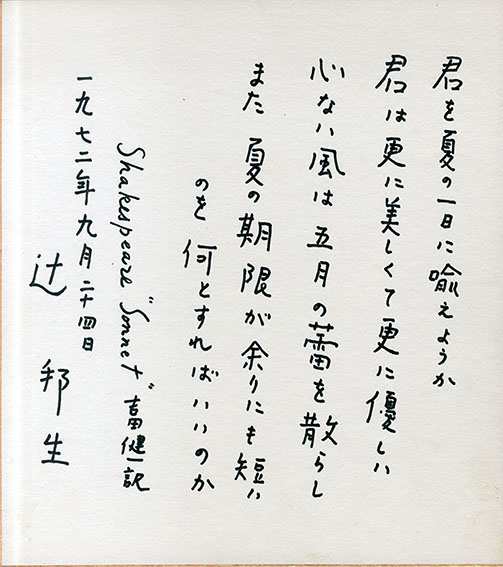 君を夏の一日に喩えようか
君は更に美しくて更に優しい
心ない風は五月の蕾を散らし
また夏の期限が余りにも短い
のを何とすればいいのか
Shakespeare "Sonnet" 吉田健一訳
一九七二年九月二十四日
辻 邦生